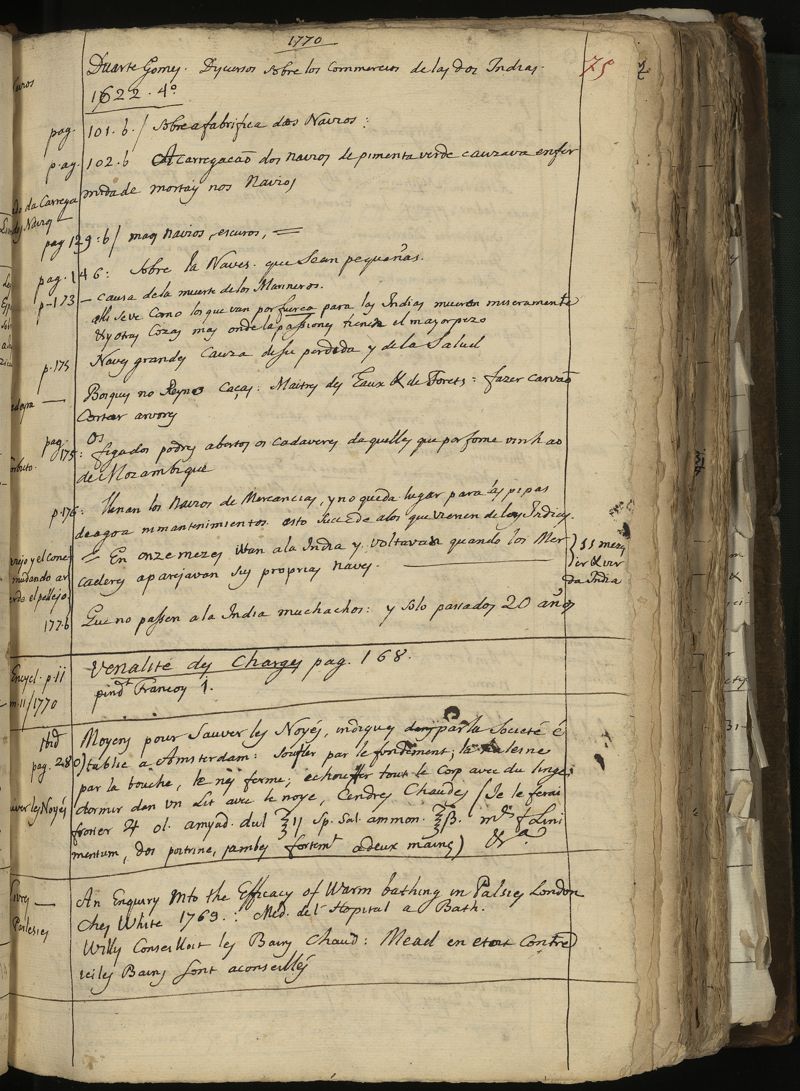 1770
Duarte Gomes. Discursos sobre los Commercios de las dos Indias.
75
1622. 4º.
pag. 101. b. / sobre a fabrifica das Navios:
pag. 102. b A carregacaõ dos navios de pimenta verde cauzava enfer
midade mortaiz nos Navios
da Carrega
pag. 129: b / maq navios, escuros, =
pag. 146: Sobre la Naves que sean pequeñas.
p-173 — causa de la muerte de los Marineros.
alli se ve como los que van por fuerca para las Indias mueren miseramente
& y otras cozas mas onde la passiones tienen el mayor pezo
p. 175 Naves grandes cauza de su perdida y de la Salud
Bosques no Reyno Caças: Maitres des Eaux & de Forets: fazer carvaõ
Cortar arvores
pag. 175: Os figados podres abertos os cadaveres daquelles que por fome vinhaõ
de Mozambique
p. 176: llenan los Navios de Mercancias, y no queda lugar para as pipas
de agoa mantenimientos. esto succede a los que vienen de las Indias.
= En onze mezes ivan a la India y voltavan quando los Mer
caderes aparejavan sus proprias naves.
11 mezes
ir & vir
da India
rejo y el cone
mudando ar
erda el pellejo
177. b Que no passen a la India muchachos: y solo passados 20 años
Encycl. p. 11
1770
Venalité des Charges pag. 168.
pindt. Francois 1.
Ibid
pag. 280)
Moyens pour Sauver les Noyés, indiques par la Societé é
tablie a Amsterdam: Soufler par le fondement; la
par la bouche, le nez ferme; echouffer tout le Corp avec du linge;
uver les Noyés
dormir dan un Lit avec le noye, Cendres Chaudes (Je le ferai
frotter
ol. amygd. dul ℥ij Sp. Sal. ammon. ℥ß. mˢ. f. Lini
mentum, dos poitrine, jambes fortemt. a deux mains) &ª.
An Enquiry into the Efficacy of Warm bathing in Palsies London
Ches White 1769.: Med. de l'Hopital a Bath.
Paralesies
Willis Conseilloit les Bains Chaud: Mead en etoit Contre
ici les Bains sont aconseillés